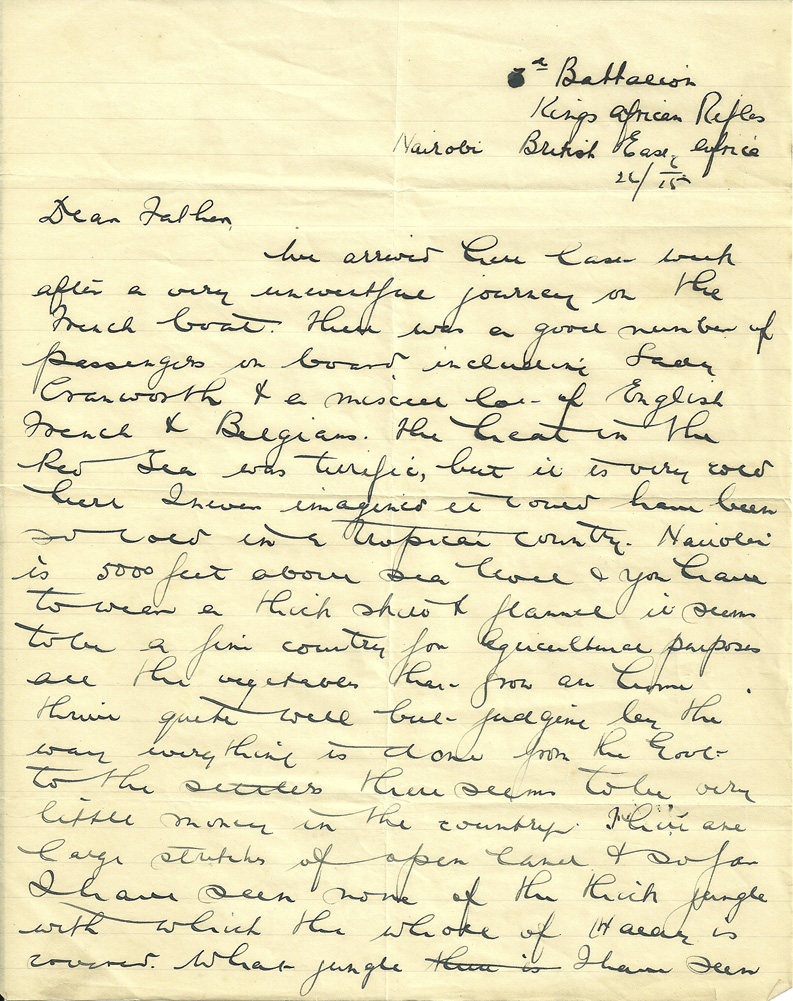 3rd Battalion
Kings African Rifles
Nairobi British East Africa
Dear Father,
We arrived here last week
after a very uneventful journey on the
French boat. There was a good number of
passengers on board including Lady
Cranworth & a miscell lot of English
French & Belgians. The heat in the
Red Sea was terrific, but it is very cold
here I never imagined it could have been
so cold in a tropical country. Nairobi
is 5000 feet above sea level & you have
to wear a thick shirt & flannel it seems
to be a fine country for agricultural purposes
all the vegetables that grow at home
thrive quite well but judging by the
way everything is done from the Govt
to the settlers there seems to be very
little money in the country. There are
large stretches of open land & so far
I have seen none of the thick jungle
with which the whole of Malay is
covered. What jungle there is I have seen